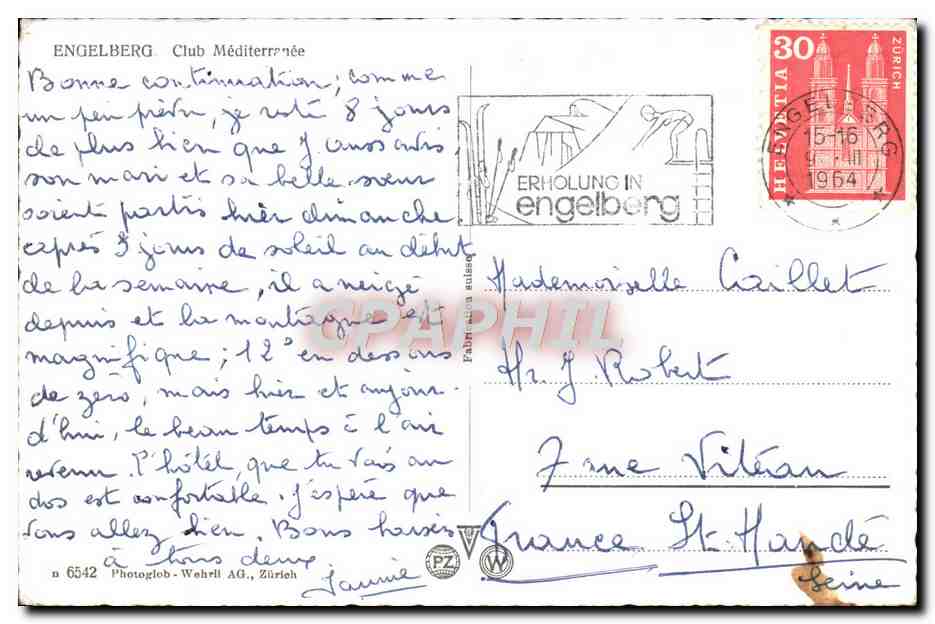 ENGELBERG. Club Méditerranée
Bonne continuation, comme
un peu prévu, je reste 8 jours
de plus bien que J.
son mari et sa belle soeur
soient partis hier dimanche.
après 3 jours de soleil au début
de la semaine, il a neigé
depuis et la montagne est
magnifique ; 12° en dessous
de zéro, mais hier et aujour-
d'hui, le beau temps à l'air
revenu. L'hôtel, que tu vois au
dos est confortable. J'espère que
vous allez bien. Bons baisers
à tous deux
Janine
n 6542 Photoglob-Wehrli AG., Zürich
Fabrication suisse
PZ
W
ERHOLUNG IN
engelberg
30
HELVETIA
ZÜRICH
ENGELBERG
15-16
9.-III
1964
Mademoiselle Caillet
Mr. J. Robert
7 rue Viteau
France St-Mandé
Seine
CPAPHIL